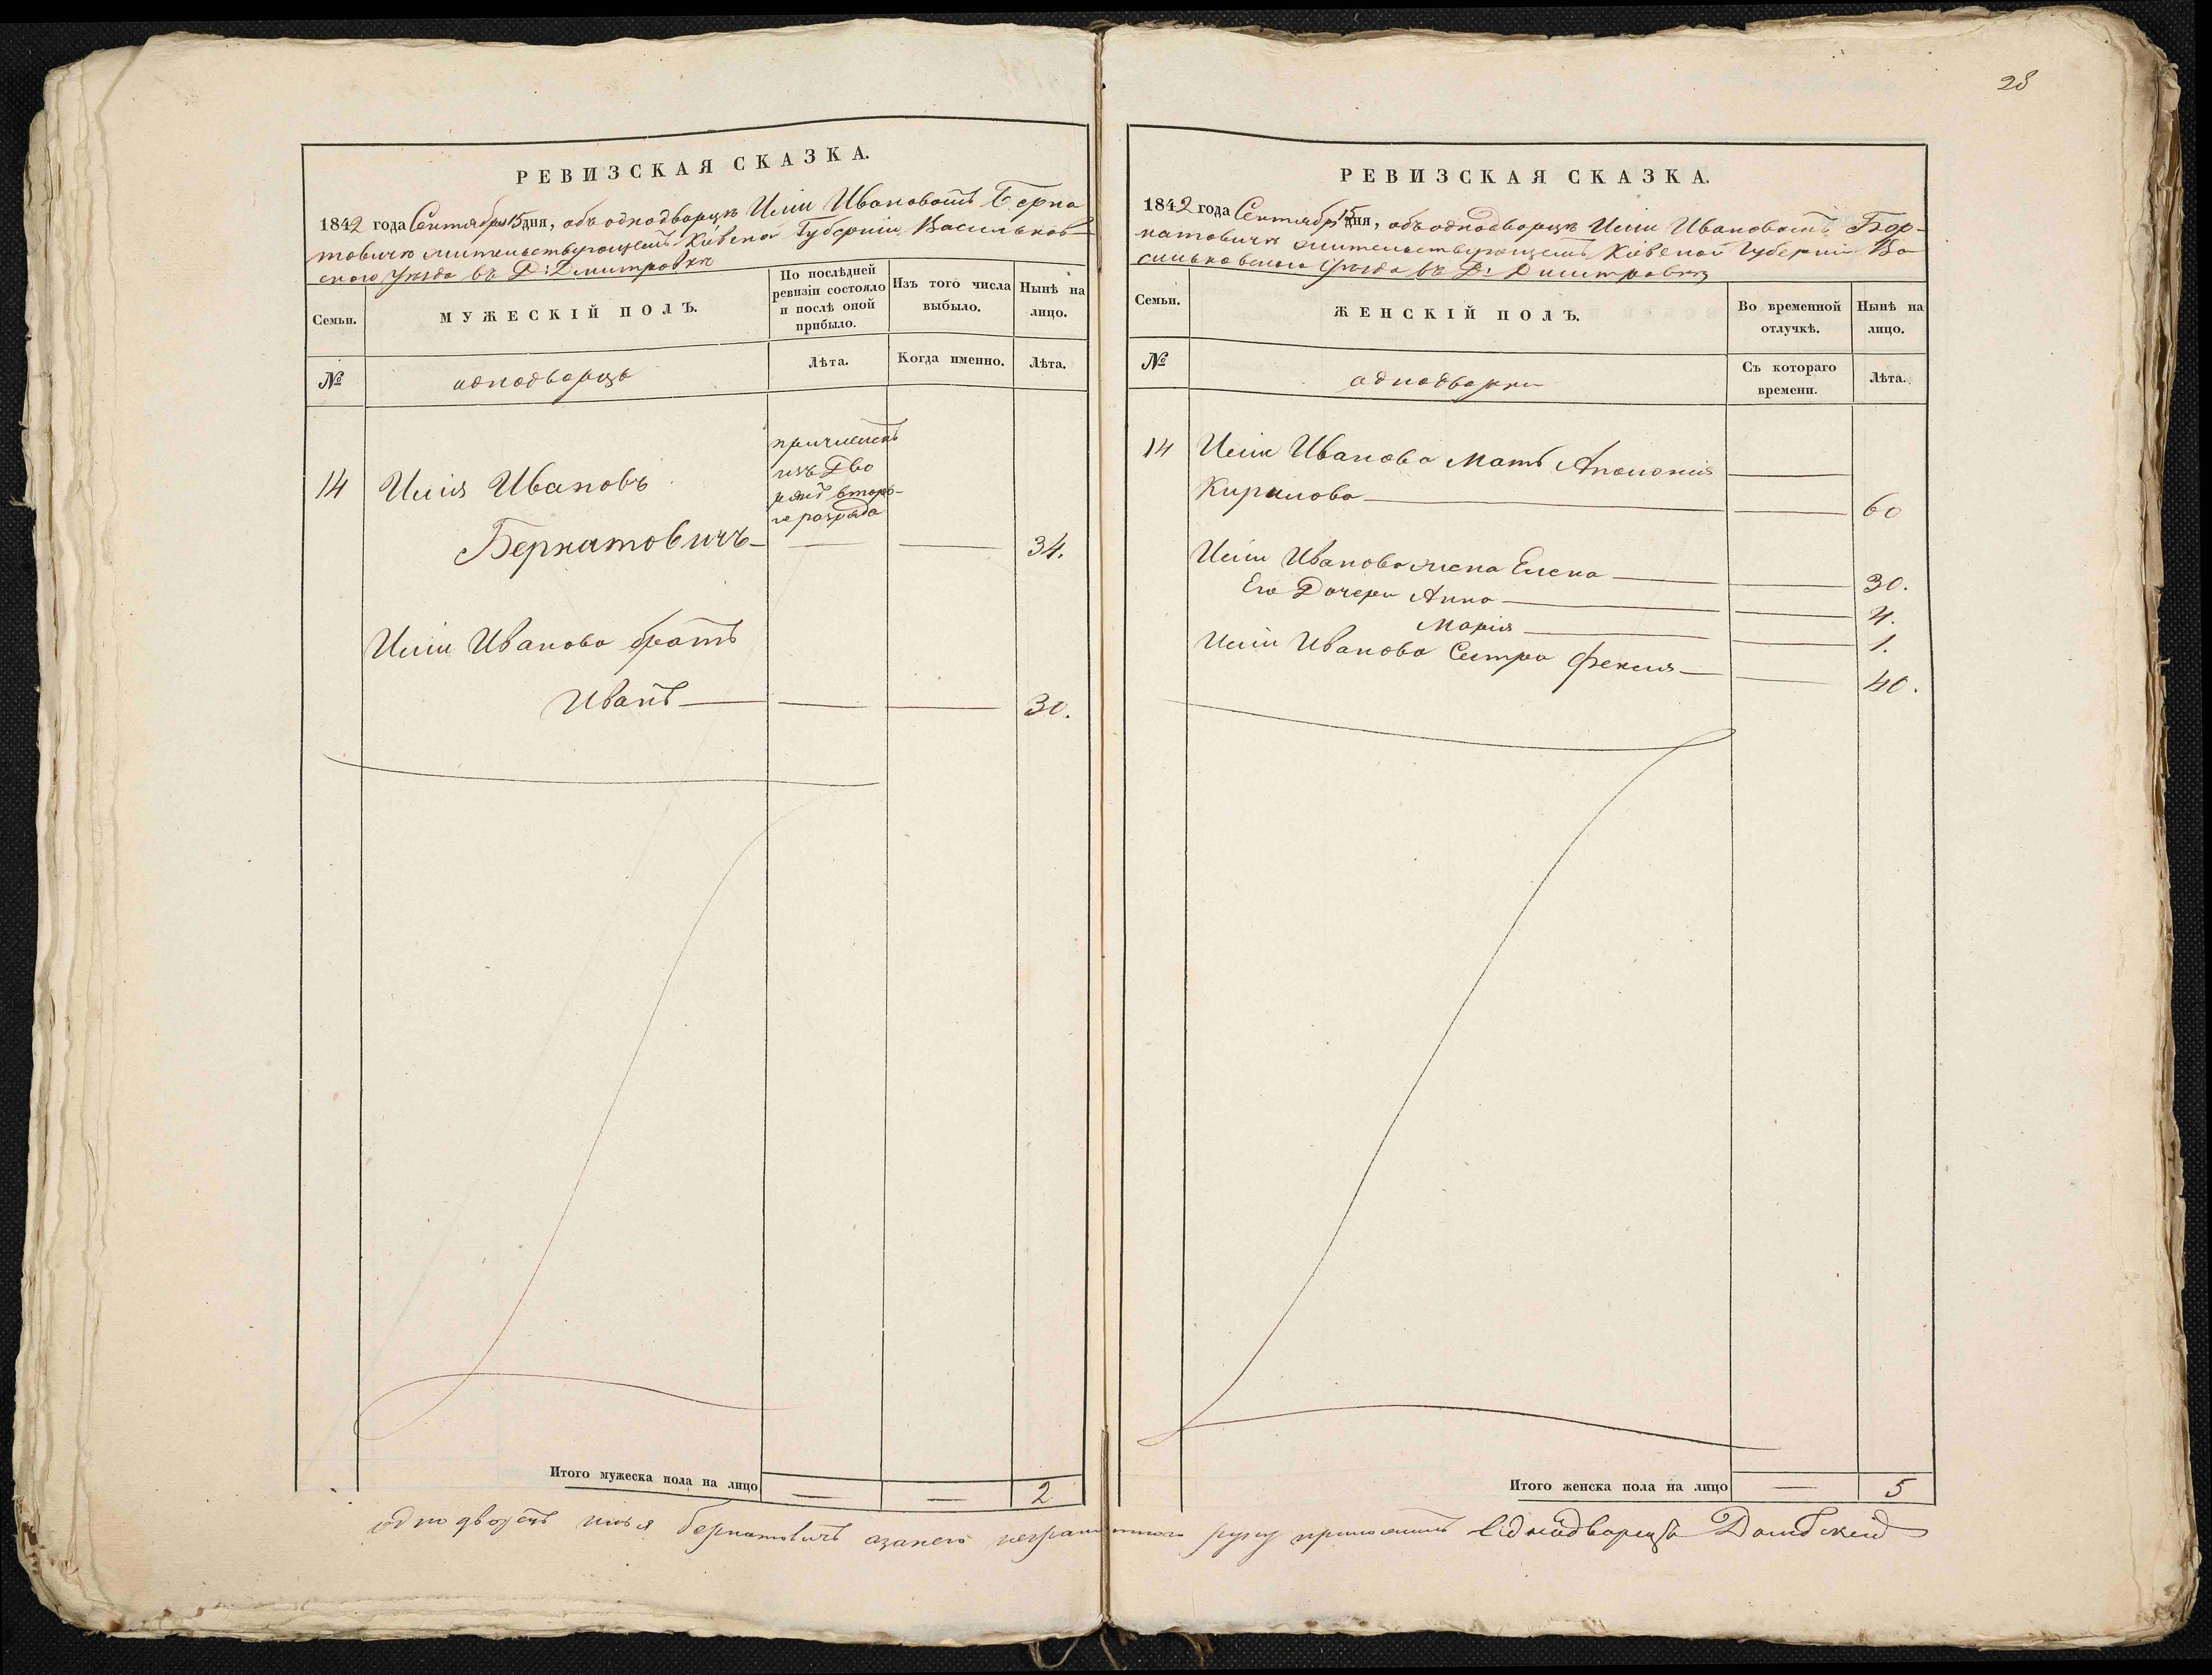 28
РЕВИЗСКАЯ СКАЗКА.
1842 года Сентября 15 дня, объ однодворцѣ Иліи Ивановомъ Берна
товичѣ жительствующемъ Кіевской Губерніи Васильков-
ского Уѣзда въ Д: Дмитровкѣ
Семьи.
МУЖЕСКІЙ ПОЛЪ.
По послѣдней
ревизіи состояло
и послѣ оной
прибыло.
Изъ того числа
выбыло.
Нынѣ на
лицо.
№
однодворцы
Лѣта.
Когда именно.
Лѣта.
причисленъ
изъ Дво
рянъ второ-
го разряда
14 Илія Ивановъ
Бернатовичъ — — — 34.
Иліи Иванова братъ
Иванъ — — — 30.
Итого мужеска пола на лицо — — 2
РЕВИЗСКАЯ СКАЗКА.
1842 года Сентября 15 дня, объ однодворцѣ Иліи Ивановомъ Бер-
натовичѣ жительствующемъ Кіевской Губерніи Ва
сильковского Уѣзда въ Д: Дмитровкѣ
Семьи.
ЖЕНСКІЙ ПОЛЪ.
Во временной
отлучкѣ.
Нынѣ на
лицо.
№
однодворки
Съ котораго
времени.
Лѣта.
14 Иліи Иванова Мать Аполонія
Кирилова — — 60
Иліи Иванова жена Елена — — 30.
Его Дочери Анна — — 4.
Марія — — 1.
Иліи Иванова Сестра Фекла — — 40.
Итого женска пола на лицо — 5
однодворецъ Илья Бернатовичъ азанего неграмотного руку приложилъ однодворецъ